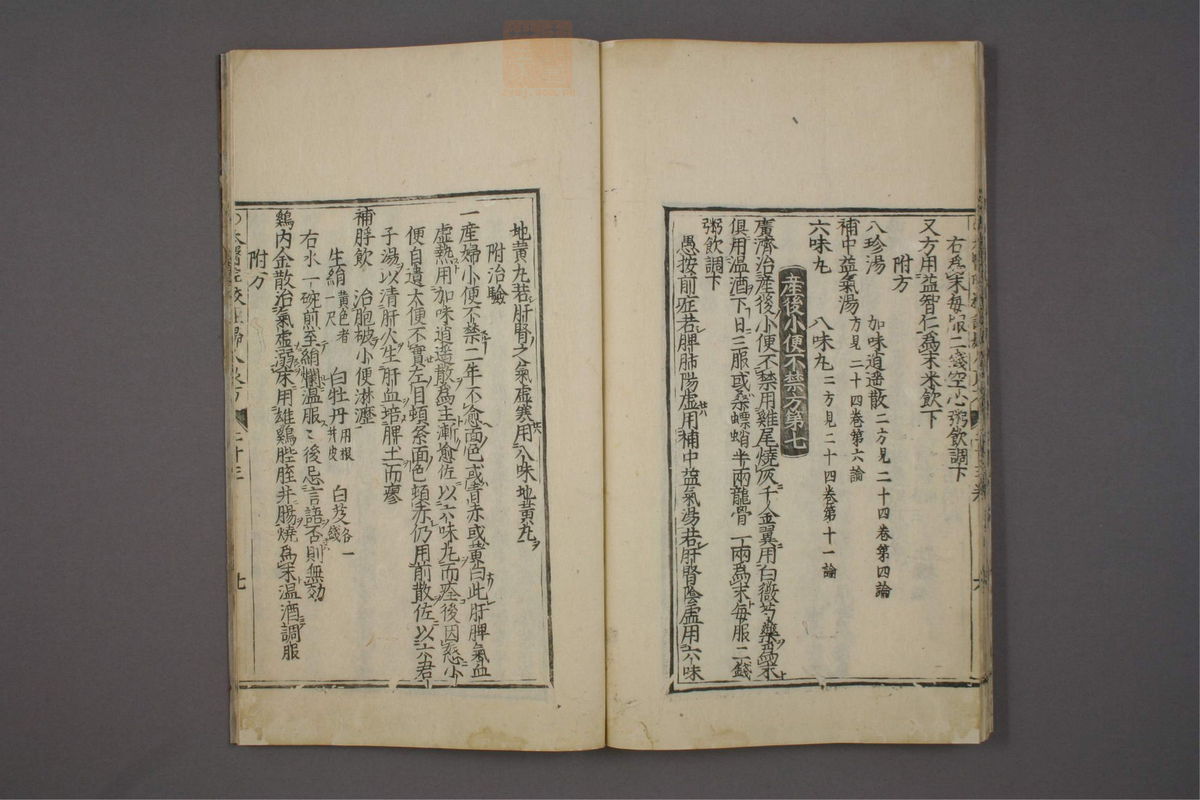 右為末每服二錢空心粥飲調下
又方用益智仁為末米飲下
附方
八珍湯　加味逍遥散二方見二十四卷第四論
補中益氣湯方見二十四卷第六論
六味丸　八味丸二方見二十四卷第十一論
産後小便不禁方第七
廣濟治産後小便不禁用雞尾燒灰千金翼用白薇芍藥為末
俱用温酒下日三服或桑螵蛸半兩龍骨一兩為末每服二錢
粥飲調下
愚按前症若脾肺陽虚用補中益氣湯若肝腎陰虚用六味
地黄丸若肝腎之氣虚寒用八味地黄丸
附治驗
一産婦小便不禁二年不愈面色或青赤或黄白此肝脾氣血
虚熱用加味逍遥散為主漸愈佐以六味丸而痊後因怒小
便自遺大便不實左目頓緊面色頓赤仍用前散佐以六君
子湯以清肝火生肝血培脾土而瘳
補脬飲　治胞破小便淋瀝
生絹黄色者一尺　白牡丹用根并皮　白芨各一錢
右水一碗煎至絹爛温服〻後忌言語否則無効
鷄内金散治氣虚溺床用雄鷄䏶胵并腸燒為末温酒調服
附方
二十三
七